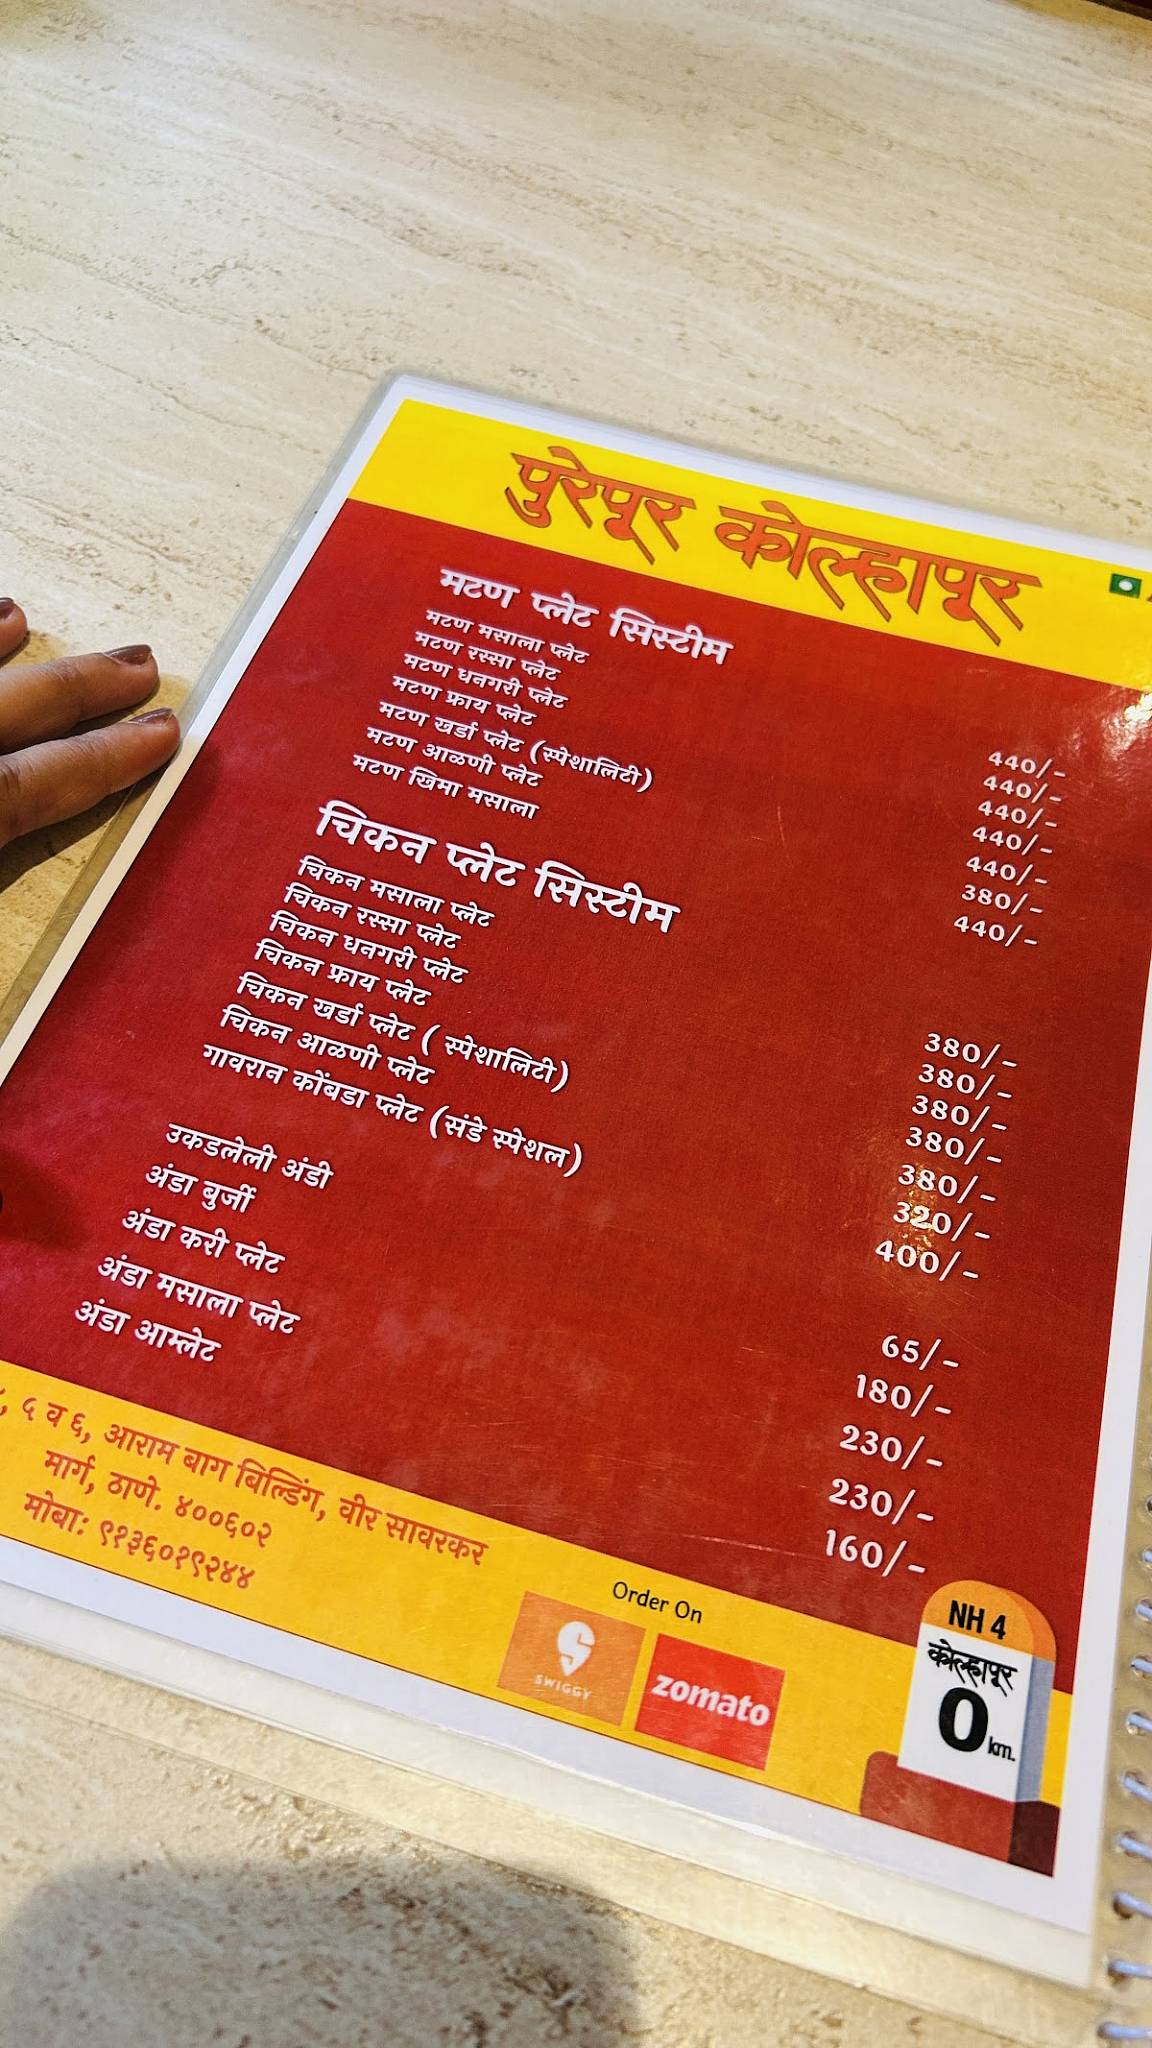 पुरेपूर कोल्हापूर
मटण प्लेट सिस्टीम
मटण मसाला प्लेट 440/-
मटण रस्सा प्लेट 440/-
मटण धनगरी प्लेट 440/-
मटण फ्राय प्लेट 440/-
मटण खर्डा प्लेट (स्पेशालिटी) 440/-
मटण आळणी प्लेट 380/-
मटण खिमा मसाला 440/-
चिकन प्लेट सिस्टीम
चिकन मसाला प्लेट 380/-
चिकन रस्सा प्लेट 380/-
चिकन धनगरी प्लेट 380/-
चिकन फ्राय प्लेट 380/-
चिकन खर्डा प्लेट ( स्पेशालिटी) 380/-
चिकन आळणी प्लेट 320/-
गावरान कोंबडा प्लेट (संडे स्पेशल) 400/-
उकडलेली अंडी 65/-
अंडा बुर्जी 180/-
अंडा करी प्लेट 230/-
अंडा मसाला प्लेट 230/-
अंडा आम्लेट 160/-
, ५ व ६, आराम बाग बिल्डिंग, वीर सावरकर
मार्ग, ठाणे. ४००६०२
मोबा: ९१३६०१९२४४
Order On
SWIGGY
zomato
NH 4
कोल्हापूर
0 km.